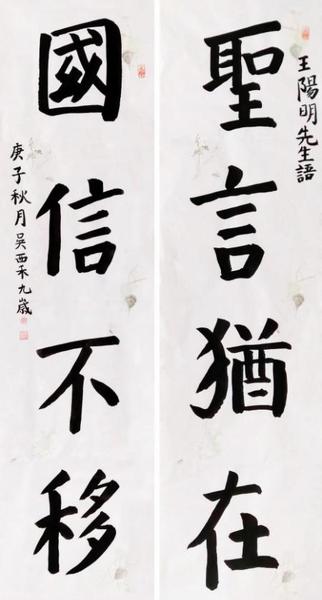 王陽明先生語
聖言猶在
國信不移
庚子秋月吳西禾九歲